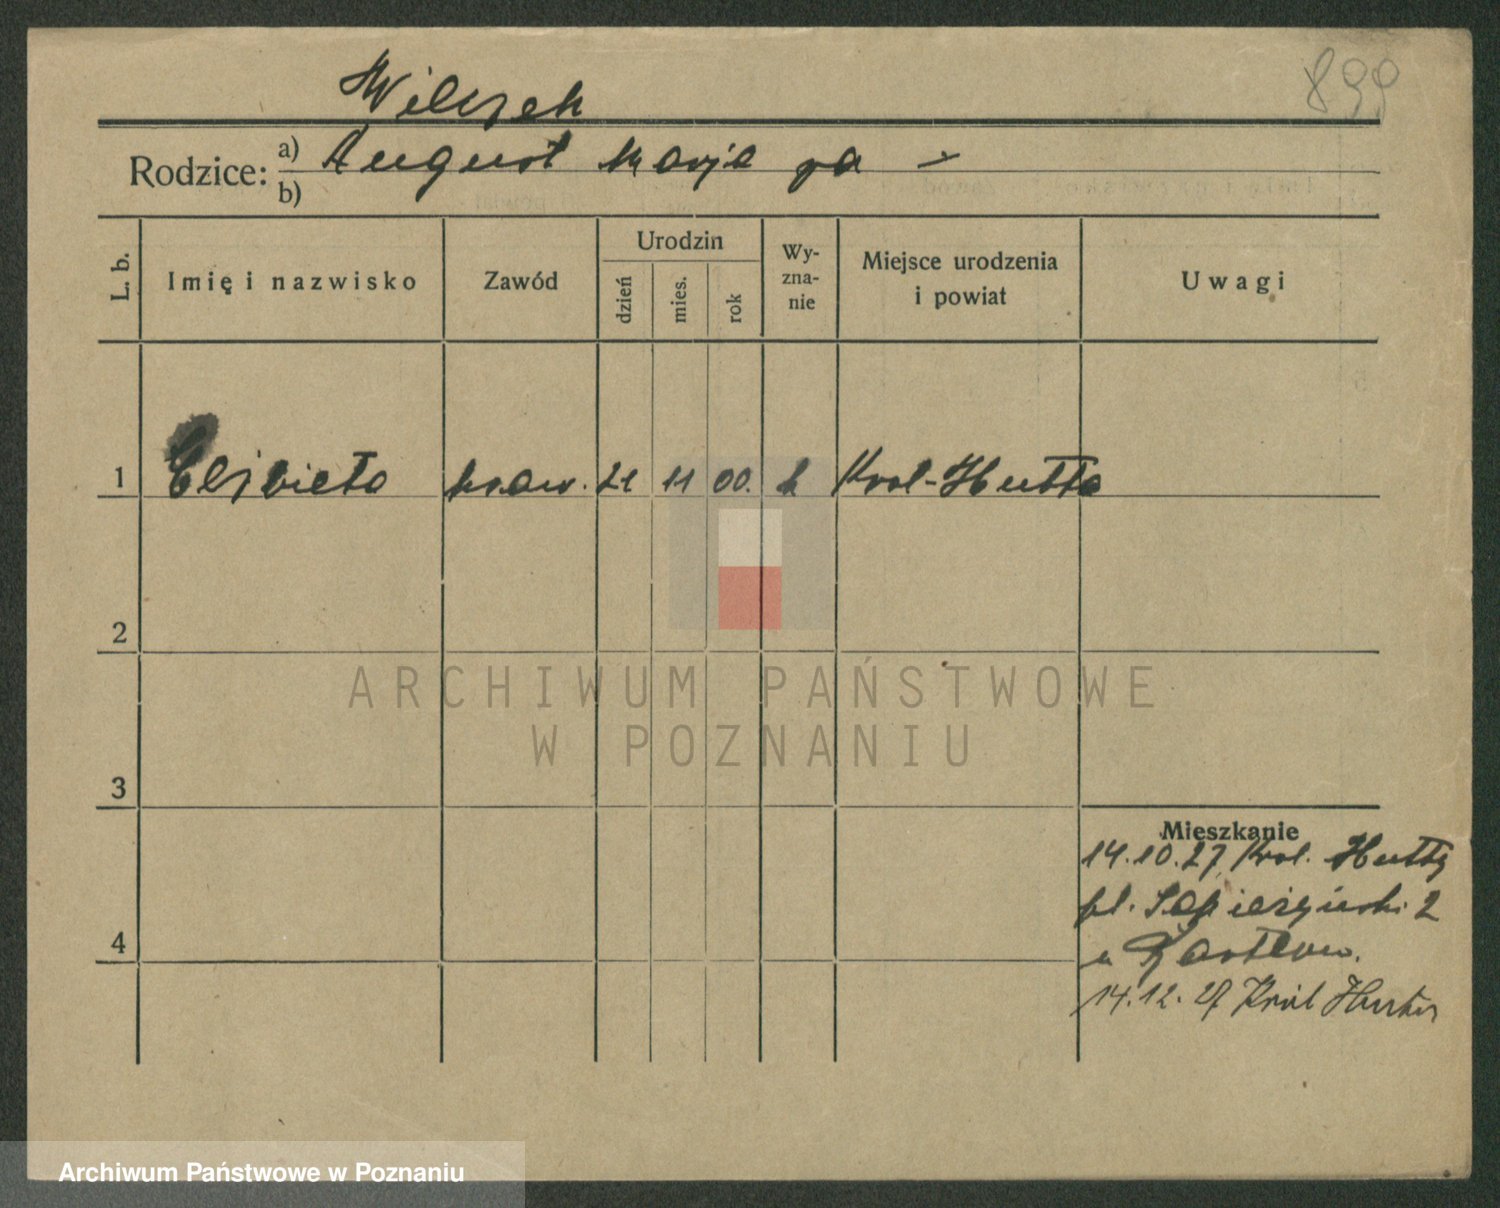 899
Wilczek
Rodzice: a) August Marja za –
b)
L. b.
Imię i nazwisko
Zawód
Urodzin
dzień
mies.
rok
Wy-
zna-
nie
Miejsce urodzenia
i powiat
Uwagi
1 Elżbieta kraw. 21 11 00. k Krol-Hutta
2
3
4
Mieszkanie
14.10.27 Krol. Hutty
pl. Sapieżyński 2
u
14.12.27 Król Huta
ARCHIWUM PAŃSTWOWE
W POZNANIU
Archiwum Państwowe w Poznaniu